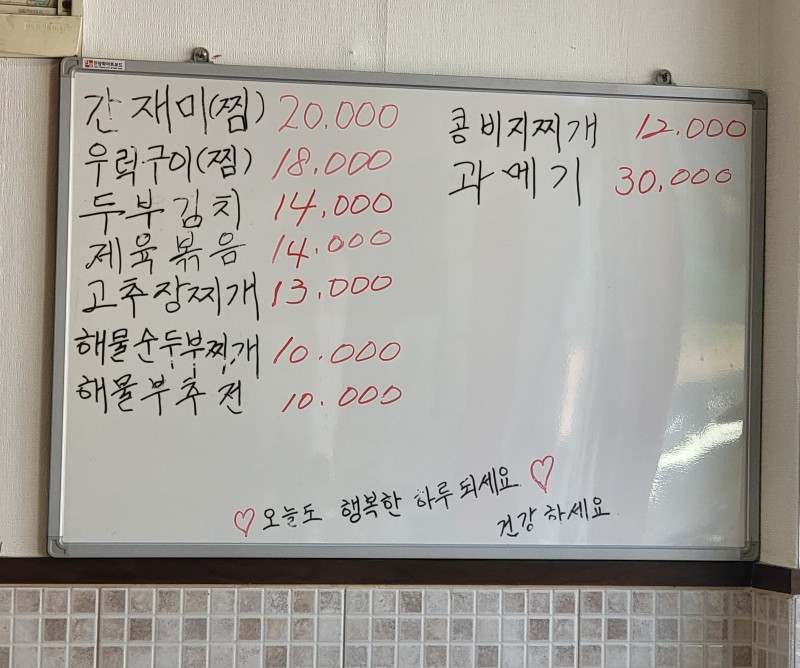 간재미(찜) 20.000
우럭구이(찜) 18.000
두부김치 14.000
제육볶음 14.000
고추장찌개 13.000
해물순두부찌개 10.000
해물부추전 10.000
콩비지찌개 12.000
과메기 30.000
♡오늘도 행복한 하루 되세요♡
건강하세요